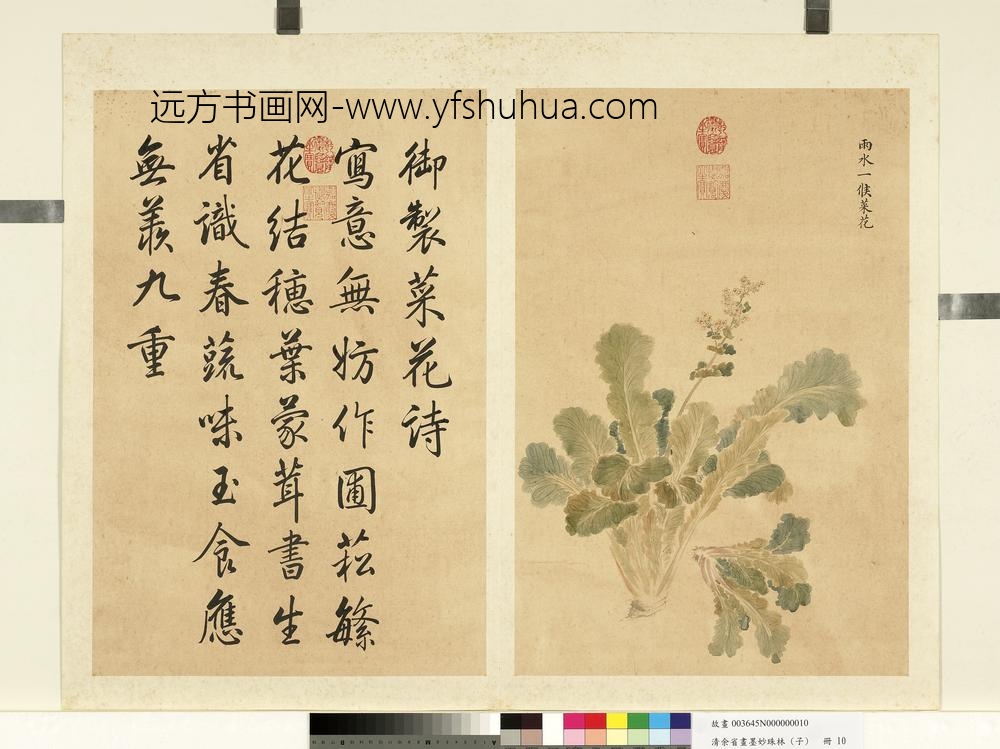 远方书画网-www.yfshuhua.com
雨水一候菜花
御製菜花詩
寫意無妨作圃菘繁
花結穗葉蒙茸書生
省識春蔬味玉食應
無羨九重
故畫 003645N000000010
清余省畫墨妙珠林（子） 冊 10